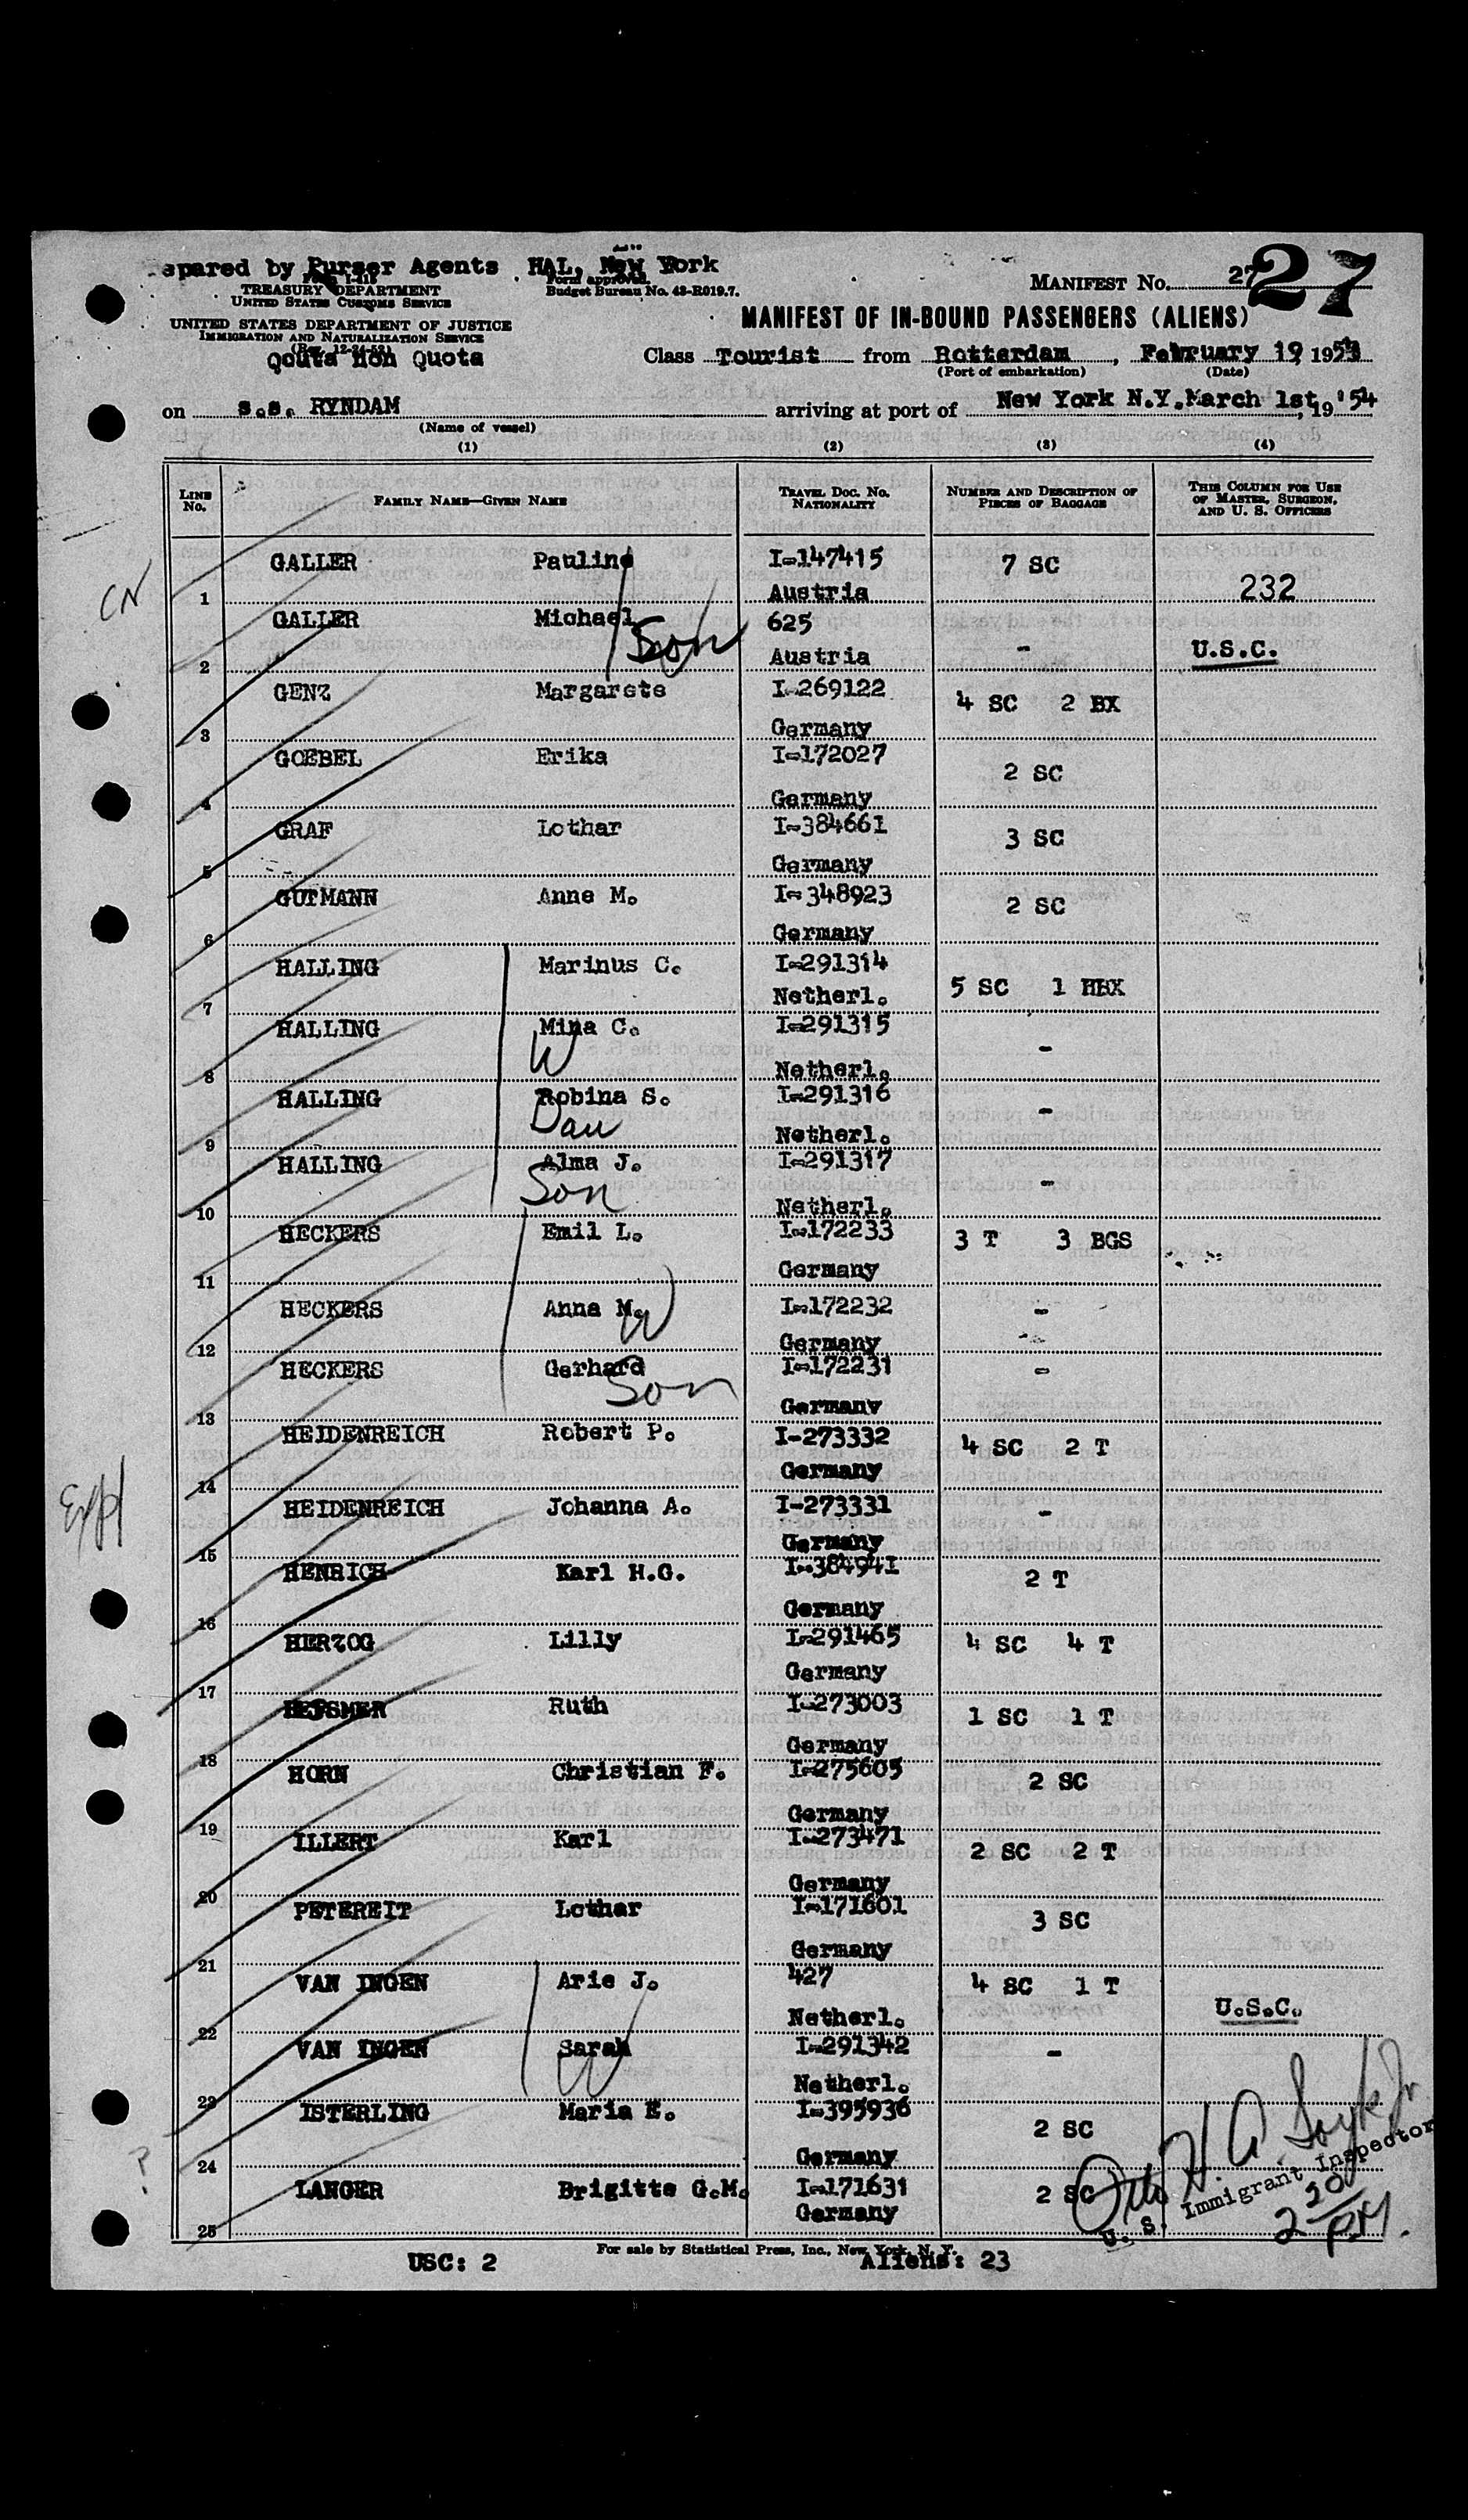 epared by Purser Agents HAL, New York
Form approved.
Budget Bureau No. 43-R019.7.
TREASURY DEPARTMENT
UNITED STATES CUSTOMS SERVICE
MANIFEST No. 27
27
UNITED STATES DEPARTMENT OF JUSTICE
IMMIGRATION AND NATURALIZATION SERVICE
(Rev. 12-24-52)
MANIFEST OF IN-BOUND PASSENGERS (ALIENS)
Qouta non Quota
Class Tourist from Rotterdam, February 19, 1954
(Port of embarkation) (Date)
on s.s. RYNDAM arriving at port of New York N.Y. March 1st, 19'54
(Name of vessel)
(1) (2) (3) (4)
LINE No. FAMILY NAME—GIVEN NAME TRAVEL DOC. No. NATIONALITY NUMBER AND DESCRIPTION OF PIECES OF BAGGAGE THIS COLUMN FOR USE OF MASTER, SURGEON, AND U. S. OFFICERS
GALLER Pauline I-147415 7 SC
CN 1 Austria 232
GALLER Michael Son 625
2 Austria - U.S.C.
GENZ Margarete I-269122 4 SC 2 BX
3 Germany
GOEBEL Erika I-172027 2 SC
4 Germany
GRAF Lothar I-384661 3 SC
5 Germany
GUTMANN Anne M. I-348923 2 SC
6 Germany
HALLING Marinus C. I-291314 5 SC 1 HBX
7 Netherl.
HALLING Mina C. I-291315 -
8 W Netherl.
HALLING Robina S. I-291316 -
9 Dau Netherl.
HALLING Alma J. I-291317 -
10 Son Netherl.
HECKERS Emil L. I-172233 3 T 3 BGS
11 Germany
HECKERS Anna M. W I-172232 -
12 Germany
HECKERS Gerhard I-172231 -
13 Son Germany
HEIDENREICH Robert P. I-273332 4 SC 2 T
14 Germany
HEIDENREICH Johanna A. I-273331 -
15 Germany
HENRICH Karl H.G. I-384941 2 T
16 Germany
HERZOG Lilly I-291465 4 SC 4 T
17 Germany
Ruth I-273003 1 SC 1 T
18 Germany
HORN Christian F. I-275605 2 SC
19 Germany
ILLERT Karl I-273471 2 SC 2 T
20 Germany
PETEREIT Lothar I-171601 3 SC
21 Germany
VAN INGEN Arie J. 427 4 SC 1 T
22 Netherl. U.S.C.
VAN INGEN Sarah I-291342 -
23 W Netherl.
ISTERLING Maria E. I-395936 2 SC
24 Germany
? LANGER Brigitte G.M. I-171631 2 SC
25 Germany
U. S. Immigrant Inspector
2 20 P.M.
For sale by Statistical Press, Inc., New York, N. Y.
USC: 2 Aliens: 23